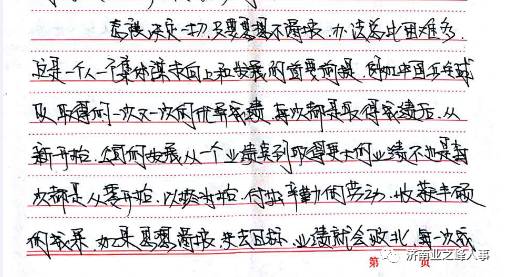 态度决定一切,只要思想不滑坡,办法总比困难多,
这是一个人一个集体谋求向上和发展的首要前提。例如中国乒乓球
队取得的一次又一次的优异成绩,每次都是取得成绩后,从
新开始。公司的发展从一个业绩到取得更大的业绩不也是每
次都是从零开始,以终为始,付出辛勤的劳动,收获丰硕
的成果,如果思想滑坡,失去目标,业绩就会败北,每一次成
第 页
济南业之峰人事